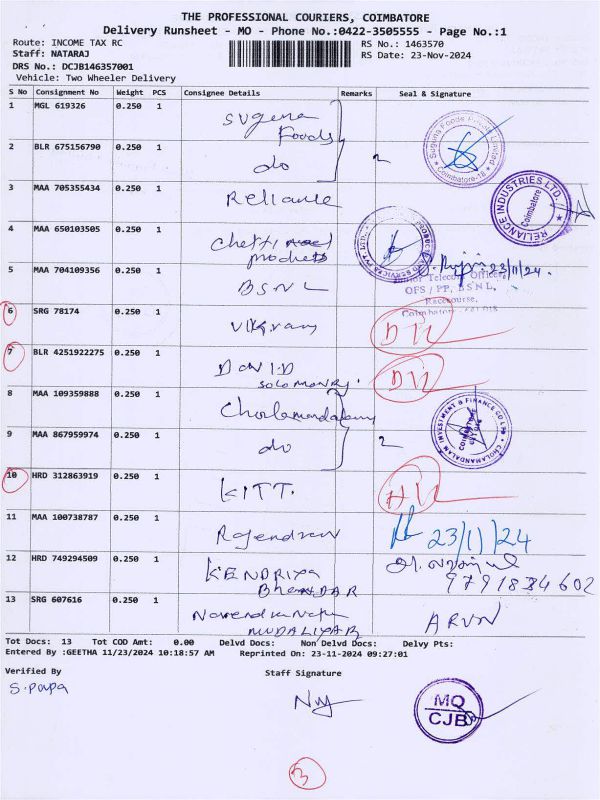 THE PROFESSIONAL COURIERS, COIMBATORE
Delivery Runsheet - MO - Phone No.:0422-3505555 - Page No.:1
Route: INCOME TAX RC
RS No.: 1463570
Staff: NATARAJ
RS Date: 23-Nov-2024
DRS No.: DCJB146357001
Vehicle: Two Wheeler Delivery
S No Consignment No Weight PCS Consignee Details Remarks Seal & Signature
1 MGL 619326 0.250 1 Suguna Foods
Suguna Foods Private Limited Coimbatore-18
2 BLR 675156790 0.250 1 do 2
3 MAA 705355434 0.250 1 Reliance
RELIANCE INDUSTRIES LTD. Coimbatore
4 MAA 650103505 0.250 1 Chetti products
5 MAA 704109356 0.250 1 BSNL
23/11/24.
Junior Telecom Officer
OFS / PP, BSNL,
Racecourse,
Coimbatore - 641 018
6 SRG 78174 0.250 1 Vikram
7 BLR 4251922275 0.250 1 DAVID
Solomonraj.
8 MAA 109359888 0.250 1 Cholamandalam
CHOLAMANDALAM INVESTMENT & FINANCE CO LTD
9 MAA 867959974 0.250 1 do 2
10 HRD 312863919 0.250 1 KITT.
11 MAA 100738787 0.250 1 Rajendran
23/11/24
12 HRD 749294509 0.250 1 KENDRIYA
BHANDAR
9791834602
13 SRG 607616 0.250 1 Narendranath
MUDALIYAR
ARUN
Tot Docs: 13 Tot COD Amt: 0.00 Delvd Docs: Non Delvd Docs: Delvy Pts:
Entered By :GEETHA 11/23/2024 10:18:57 AM Reprinted On: 23-11-2024 09:27:01
Verified By
Staff Signature
MO
CJB
3